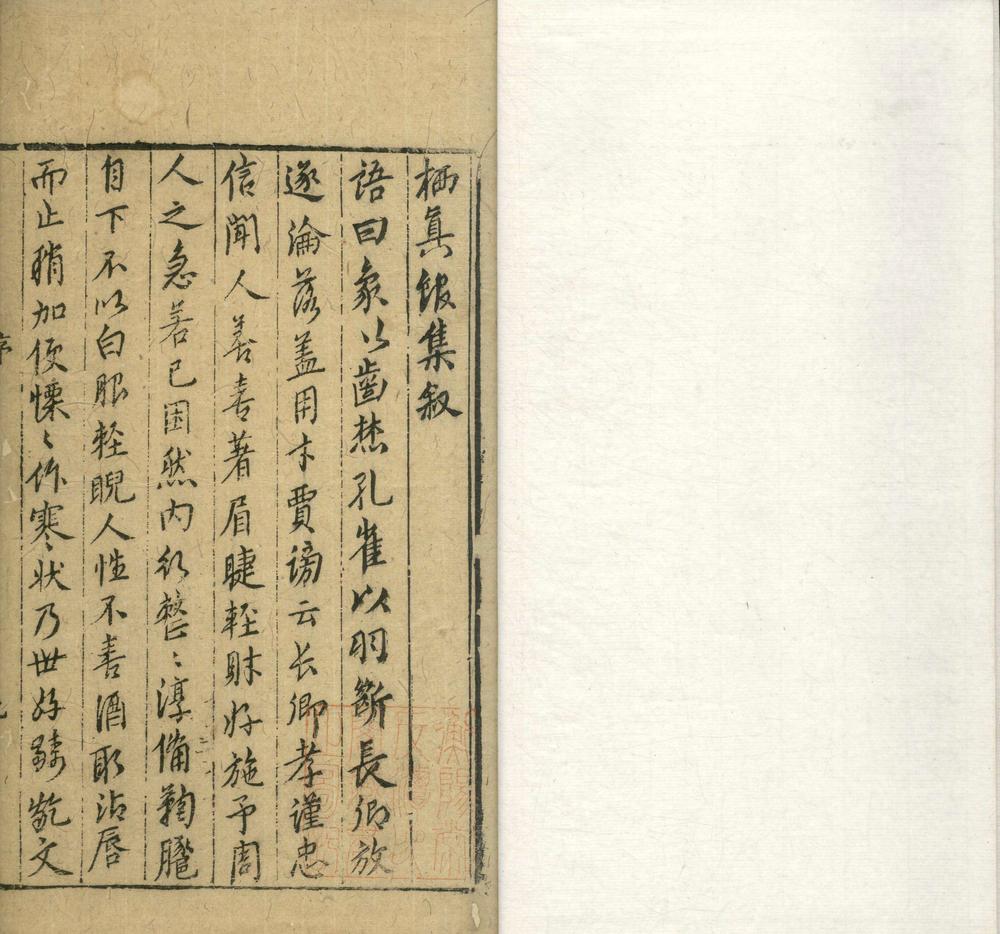 栖真館集叙
語曰象以齒焚孔雀以羽斷長卿放
逐淪落盖用才賈謗云长卿孝谨忠
信聞人善喜著眉睫輕財好施予周
人之急若己困然内行整〻淳备鞠跽
自下不以白眼輕睨人性不善酒取沾唇
而止稍加便慄〻作寒状乃世好齮齕文
序